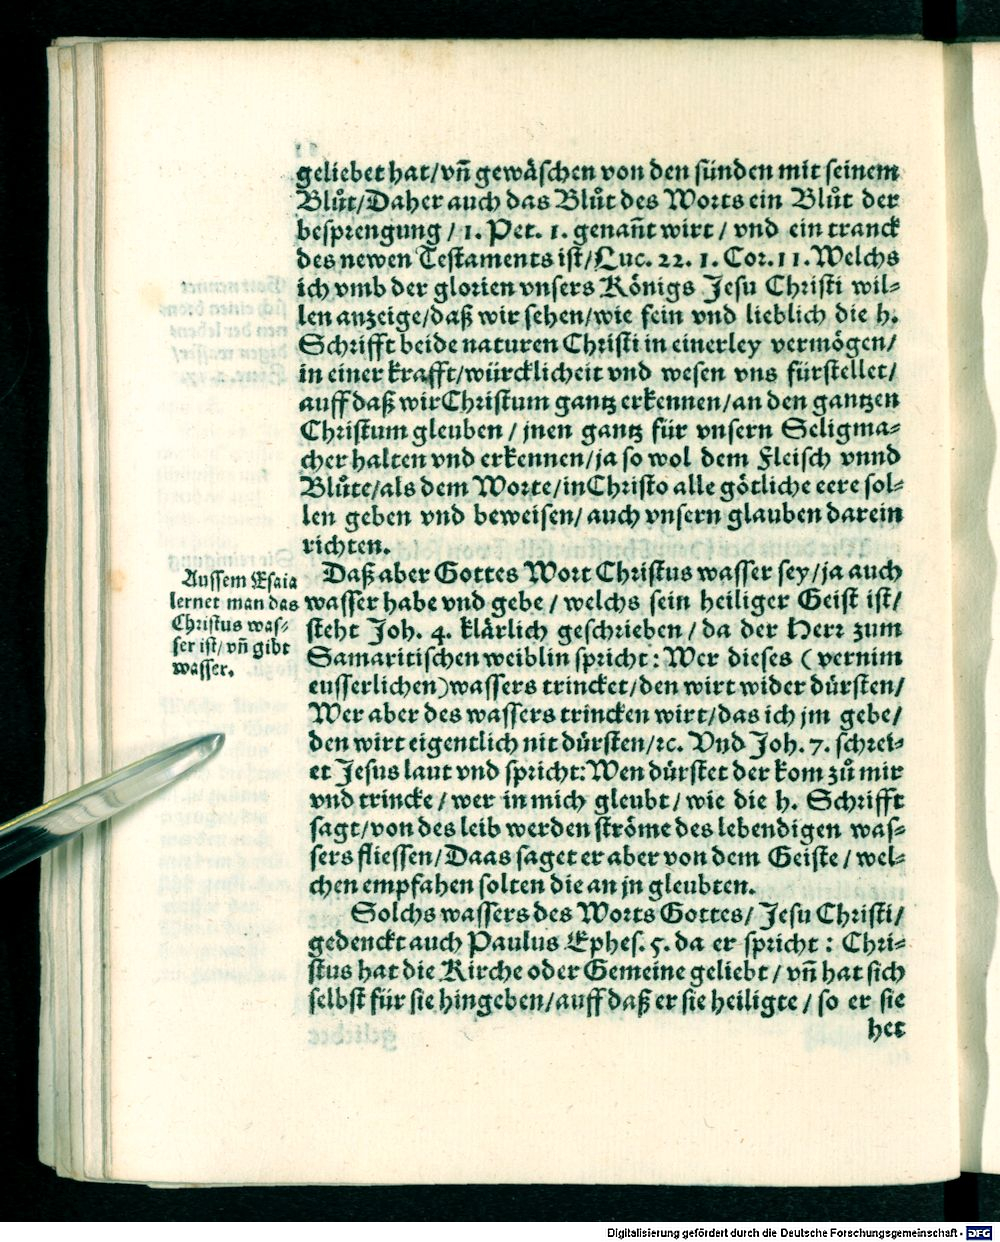 geliebet hat/vñ gewäschen von den sünden mit seinem
Blůt/Daher auch das Blůt des Worts ein Blůt der
besprengung / 1. Pet. 1. genañt wirt / vnd ein tranck
des newen Testaments ist/Luc. 22. 1. Cor. 11. Welchs
ich vmb der glorien vnsers Königs Jesu Christi wil⸗
len anzeige/daß wir sehen/wie fein vnd lieblich die h.
Schrifft beide naturen Christi in einerley vermögen/
in einer krafft/würcklicheit vnd wesen vns fürstellet/
auff daß wir Christum gantz erkennen/an den gantzen
Christum gleuben / jnen gantz für vnsern Seligma⸗
cher halten vnd erkennen/ja so wol dem Fleisch vnnd
Blůte/als dem Worte/in Christo alle götliche eere sol⸗
len geben vnd beweisen/ auch vnsern glauben darein
richten.
Aussem Esaia
lernet man das
Christus was⸗
ser ist/vñ gibt
wasser.
Daß aber Gottes Wort Christus wasser sey/ja auch
wasser habe vnd gebe / welchs sein heiliger Geist ist/
steht Joh. 4. klärlich geschrieben / da der Herr zum
Samaritischen weiblin spricht : Wer dieses ( vernim
eusserlichen)wassers trincket/den wirt wider dürsten/
Wer aber des wassers trincken wirt/das ich jm gebe/
den wirt eigentlich nit dürsten/ꝛc. Vnd Joh. 7. schrei⸗
et Jesus laut vnd spricht: Wen dürstet der kom zů mir
vnd trincke / wer in mich gleubt / wie die h. Schrifft
sagt/von des leib werden ströme des lebendigen was⸗
sers fliessen/Daas saget er aber von dem Geiste / wel⸗
chen empfahen solten die an jn gleubten.
Solchs wassers des Worts Gottes/ Jesu Christi/
gedenckt auch Paulus Ephes. 5. da er spricht : Chri⸗
stus hat die Kirche oder Gemeine geliebt / vñ hat sich
selbst für sie hingeben/auff daß er sie heiligte / so er sie
het
Digitalisierung gefördert durch die Deutsche Forschungsgemeinschaft - DFG